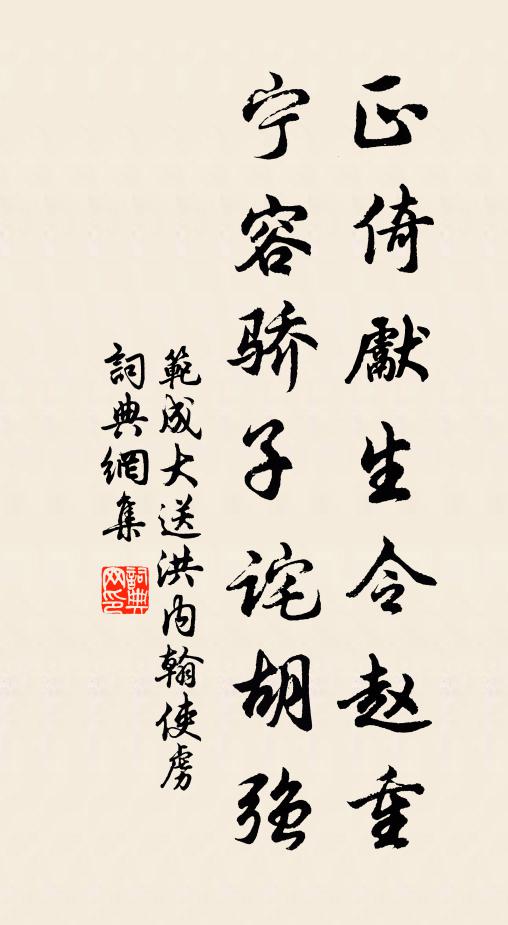 正倚獻生令赵重
宁容骄子诧胡强
範成大送洪内翰使虏
詞典網集
詞典网印